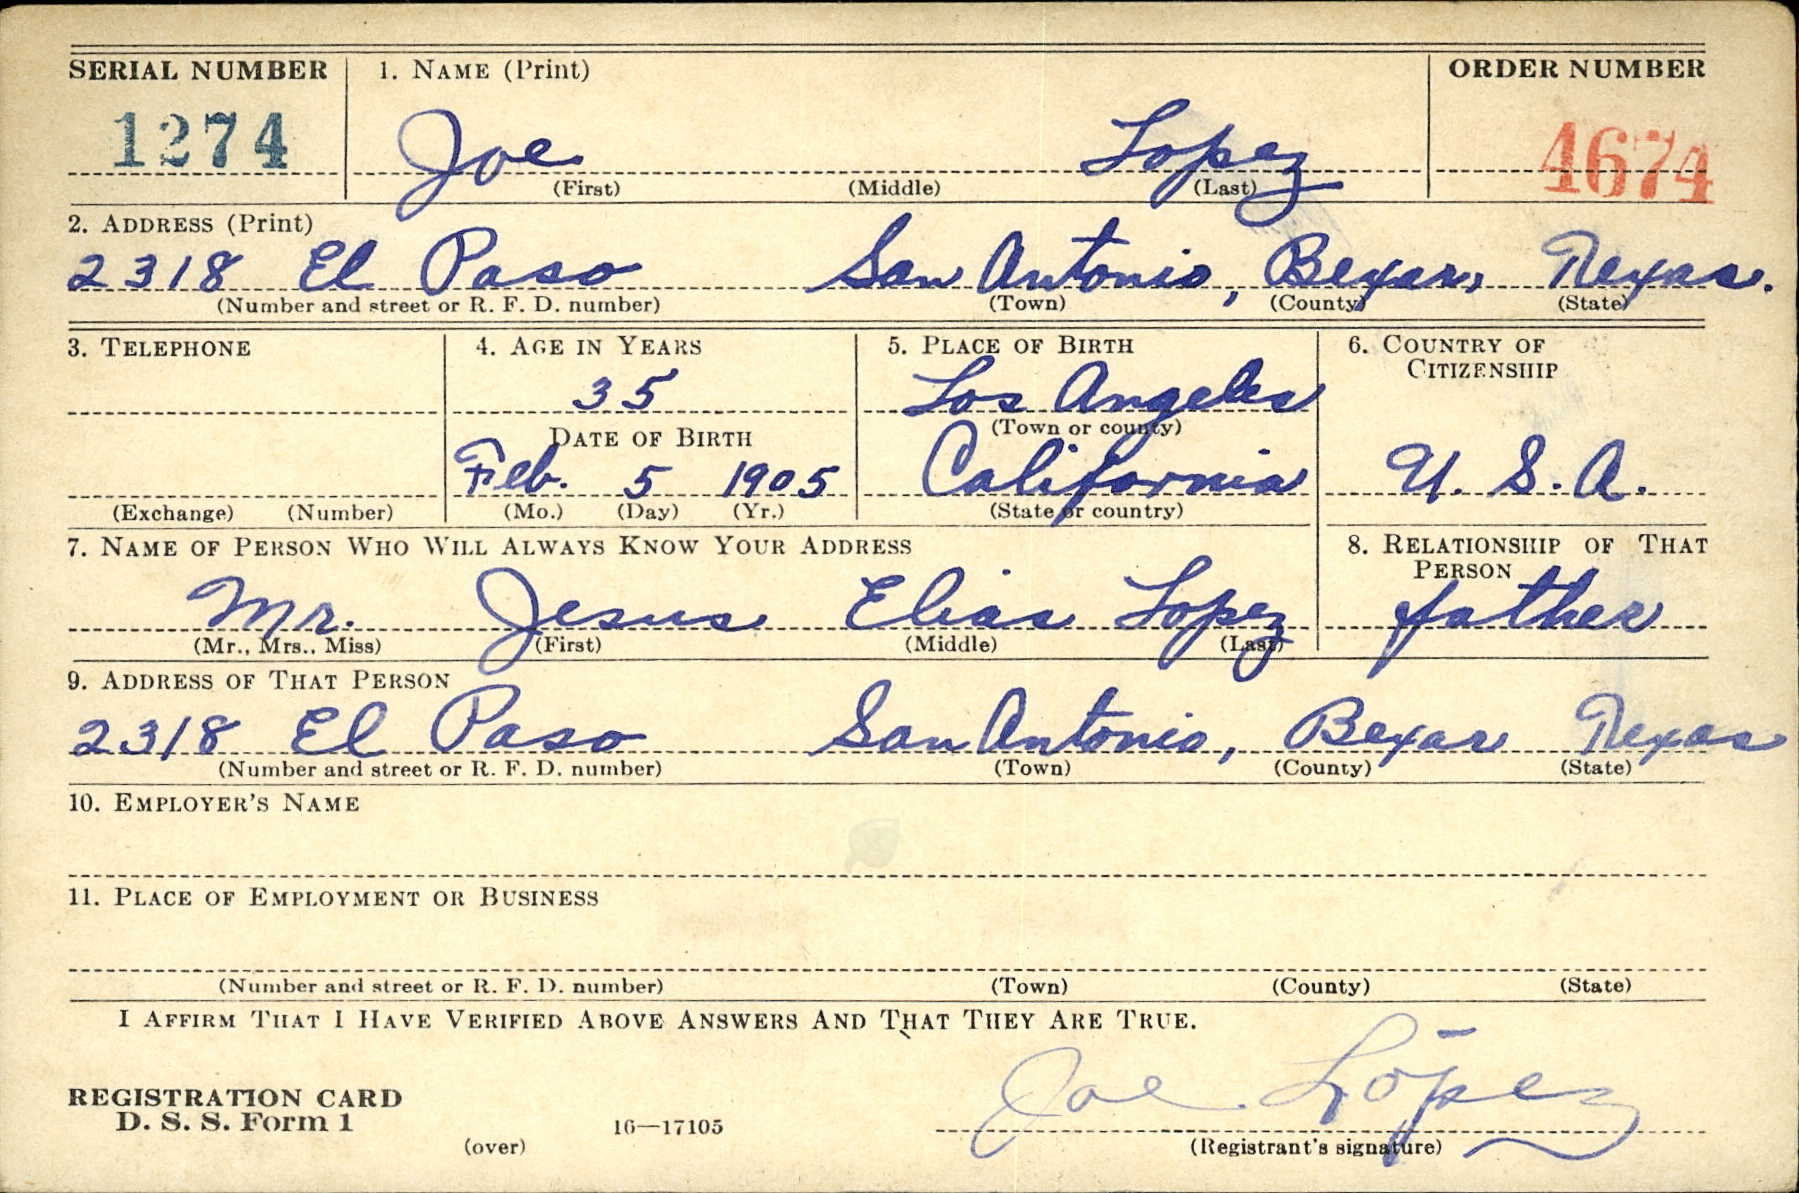 SERIAL NUMBER 1. NAME (Print) ORDER NUMBER
1274 Joe Lopez 4674
(First) (Middle) (Last)
2. ADDRESS (Print)
2318 El Paso San Antonio, Bexar, Texas.
(Number and street or R. F. D. number) (Town) (County) (State)
3. TELEPHONE 4. AGE IN YEARS 5. PLACE OF BIRTH 6. COUNTRY OF
CITIZENSHIP
35 Los Angeles
(Town or county)
DATE OF BIRTH
Feb. 5 1905 California U. S. A.
(Exchange) (Number) (Mo.) (Day) (Yr.) (State or country)
7. NAME OF PERSON WHO WILL ALWAYS KNOW YOUR ADDRESS 8. RELATIONSHIP OF THAT
PERSON
Mr. Jesus Elias Lopez father
(Mr., Mrs., Miss) (First) (Middle) (Last)
9. ADDRESS OF THAT PERSON
2318 El Paso San Antonio, Bexar Texas
(Number and street or R. F. D. number) (Town) (County) (State)
10. EMPLOYER'S NAME
11. PLACE OF EMPLOYMENT OR BUSINESS
(Number and street or R. F. D. number) (Town) (County) (State)
I AFFIRM THAT I HAVE VERIFIED ABOVE ANSWERS AND THAT THEY ARE TRUE.
Joe López
REGISTRATION CARD
D. S. S. Form 1
(over) 16—17105 (Registrant's signature)